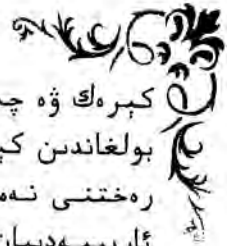 كېرەك ۋە چى
بولغاندىن كې
رەختنى نەم